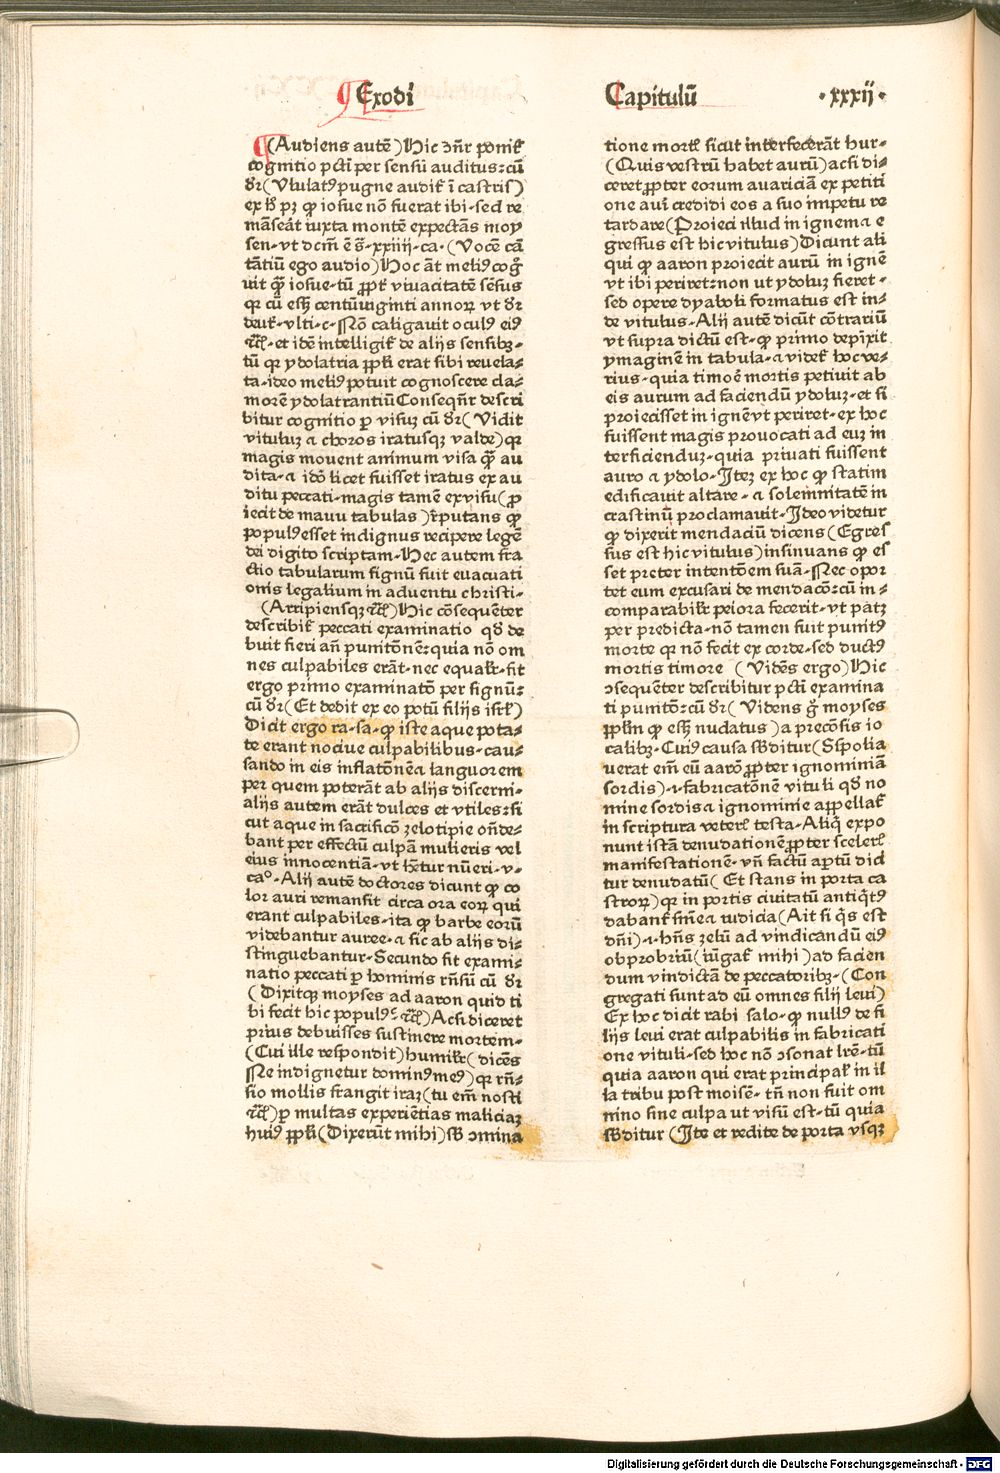 Exodi
Capitulū ·xxxij·
(Audiens autē) Hic ↄn̄r ponit᷑
cognitio pctī per sensū auditus: cū
dr̄ (Vlulatꝰ pugne audit᷑ ī castris)
ex h̊ pꝫ ꝙ iosue nō fuerat ibi-sed re
māseāt iuxta montē expectās moy
sen-vt dcm̄ ē s̄-xxiiij-ca·(Vocē cā
tātiū ego audio) Hoc āt meliꝰ cog̊
uit qᷓ iosue-tū ꝓpt᷑ viuacitatē sēsus
qꝛ cū eēt centūuiginti annoꝝ vt dr̄
deut᷑-vlti-c-Nō caligauit oculꝰ eiꝰ
⁊c̄-et idē intelligit᷑ de alijs sensibꝫ-
tū qꝛ ydolatria ppli erat sibi reuela⸗
ta-ideo meliꝰ potuit cognoscere cla⸗
morē ydolatrantiū Conseqn̄r descri
bitur cognitio ꝑ visuꝫ cū dr̄ (Vidit
vituluꝫ ⁊ choros iratusqꝫ valde) qꝛ
magis mouent animum visa qᷓ au
dita-⁊ idō licet fuisset iratus ex au
ditu peccati-magis tamē ex visu (ꝓ
iecit de manu tabulas) r̄putans ꝙ
populꝰ esset indignus recipere legē
dei digito scriptam-Hec autem fra
ctio tabularum signū fuit euacuati
onis legalium in aduentu christi-
(Arripiensqꝫ ⁊c̄) Hic cōsequēter
describit᷑ peccati examinatio qd̄ de
buit fieri an̄ punitōnē: quia nō om
nes culpabiles erāt-nec equalr̄-fit
ergo primo examinatō per signū:
cū dr̄ (Et dedit ex eo potū filijs isrl̄)
Dicit ergo ra-sa-ꝙ iste aque pota⸗
te erant nociue culpabilibus-cau⸗
sando in eis inflatōnē ⁊ languorem
per quem poterāt ab alijs discerni-
alijs autem erāt dulces et vtiles: si
cut aque in sacrificō zelotipie on̄de⸗
bant per effectū culpā mulieris vel
eius innocentiā-vt hr̄tur nūeri-v-
ca°-Alij autē doctores dicunt ꝙ co
lor auri remansit circa ora eoꝝ qui
erant culpabiles-ita ꝙ barbe eorū
videbantur auree-⁊ sic ab alijs di⸗
stinguebantur-Secundo fit exami⸗
natio peccati ꝑ hominis rn̄sū cū dr̄
(Dixitqꝫ moyses ad aaron quid ti
bi fecit hic populꝰ ⁊c̄) Ac si diceret
prius debuisses sustinere mortem-
(Cui ille respondit) humilr̄ (dicēs
Ne indignetur dominꝰ meꝰ) qꝛ rn̄⸗
sio mollis frangit iraꝫ (tu em̄ nosti
⁊c̄) ꝑ multas experiētias maliciaꝫ
huiꝰ ppli (Dixerūt mihi) sb̄ ↄmina
tione mort᷑ sicut interfecerāt hur⸗
(Quis vestrū habet aurū) ac si di⸗
ceret ꝓpter eorum auariciā ex petiti
one auri credidi eos a suo impetu re
tardare (Proieci illud in ignem ⁊ e
gressus est hic vitulus) Dicunt ali
qui ꝙ aaron proiecit aurū in ignē
vt ibi periret: non ut ydoluꝫ fieret-
sed opere dyaboli formatus est in⸗
de vitulus-Alij autē dicūt cōtrariū
vt supra dictū est-ꝙ primo depīxit
ymaginē in tabula-⁊ videt᷑ hoc ve⸗
rius-quia timoē mortis petiuit ab
eis aurum ad faciendū ydoluꝫ-et si
proiecisset in ignē vt periret-ex hoc
fuissent magis prouocati ad euꝫ in
terficienduꝫ-quia priuati fuissent
auro ⁊ ydolo-Iteꝫ ex hoc ꝙ statim
edificauit altare-⁊ solemnitatē in
crastinū proclamauit-Ideo videtur
ꝙ dixerit mendaciū dicens (Egres
sus est hic vitulus) insinuans ꝙ es
set preter intentōem suā-Nec opor
tet eum excusari de mendacō: cū in⸗
comparabilr̄ peiora fecerit-vt patꝫ
per predicta-nō tamen fuit punitꝰ
morte qꝛ nō fecit ex corde-sed ductꝰ
mortis timore (Vidēs ergo) Hic
ↄsequēter describitur pctī examina
ti punitō: cū dr̄ (Videns g̊ moyses
pplm̄ ꝙ eēt nudatus) a precōsis io
calibꝫ-Cuiꝰ causa sb̄ditur (Spolia
uerat em̄ eū aarō ꝓpter ignominiā
sordis)-i-fabricatōnē vituli qd̄ no
mine sordis ⁊ ignominie appellat᷑
in scriptura veteris testa-Aliq̄ expo
nunt istā denudationē ꝓpter sceleris
manifestationē-vn̄ factū aꝑtū dici
tur denudatū (Et stans in porta ca
stroꝝ) qꝛ in portis ciuitatū antiq̄tꝰ
dabant᷑ sn̄ie ⁊ iudicia (Ait si q̄s est
dn̄i)-i-hn̄s zelū ad vindicandū eiꝰ
obprobriū (iūgat᷑ mihi) ad facien
dum vindictā de peccatoribꝫ-(Con
gregati sunt ad eū omnes filij leui)
Ex hoc dicit rabi salo-ꝙ nullꝰ de fi
lijs leui erat culpabilis in fabricati
one vituli-sed hoc nō ↄsonat lr̄e-tū
quia aaron qui erat principal᷑ in il
la tribu post moisē-tn̄ non fuit om
nino sine culpa ut visū est-tū quia
sb̄ditur (Ite et redite de porta vsqꝫ
Digitalisierung gefördert durch die Deutsche Forschungsgemeinschaft - DFG